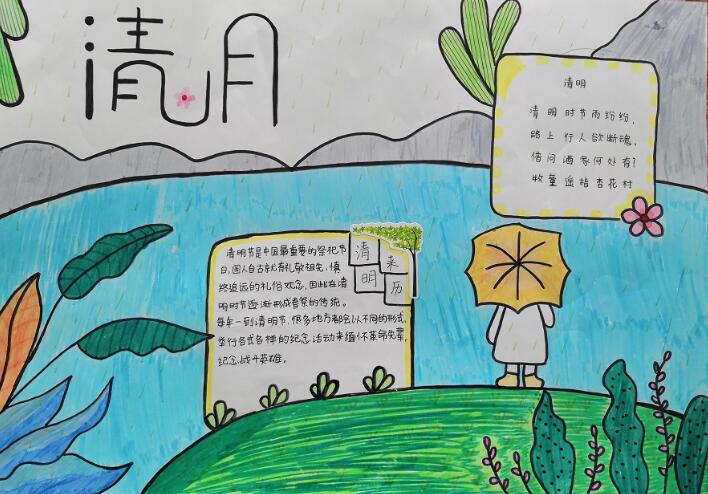 清明
清明
清明时节雨纷纷,
路上行人欲断魂。
借问酒家何处有?
牧童遥指杏花村
清明来历
清明节是中国最重要的祭祀节
日,国人自古就有礼敬祖先、慎
终追远的礼俗观念,因此在清
明时节逐渐形成音祭的传统。
每年一到清明节,很多地方都会以不同的形式,
举行各式各样的纪念活动来缅怀革命先辈,
纪念战斗英雄。